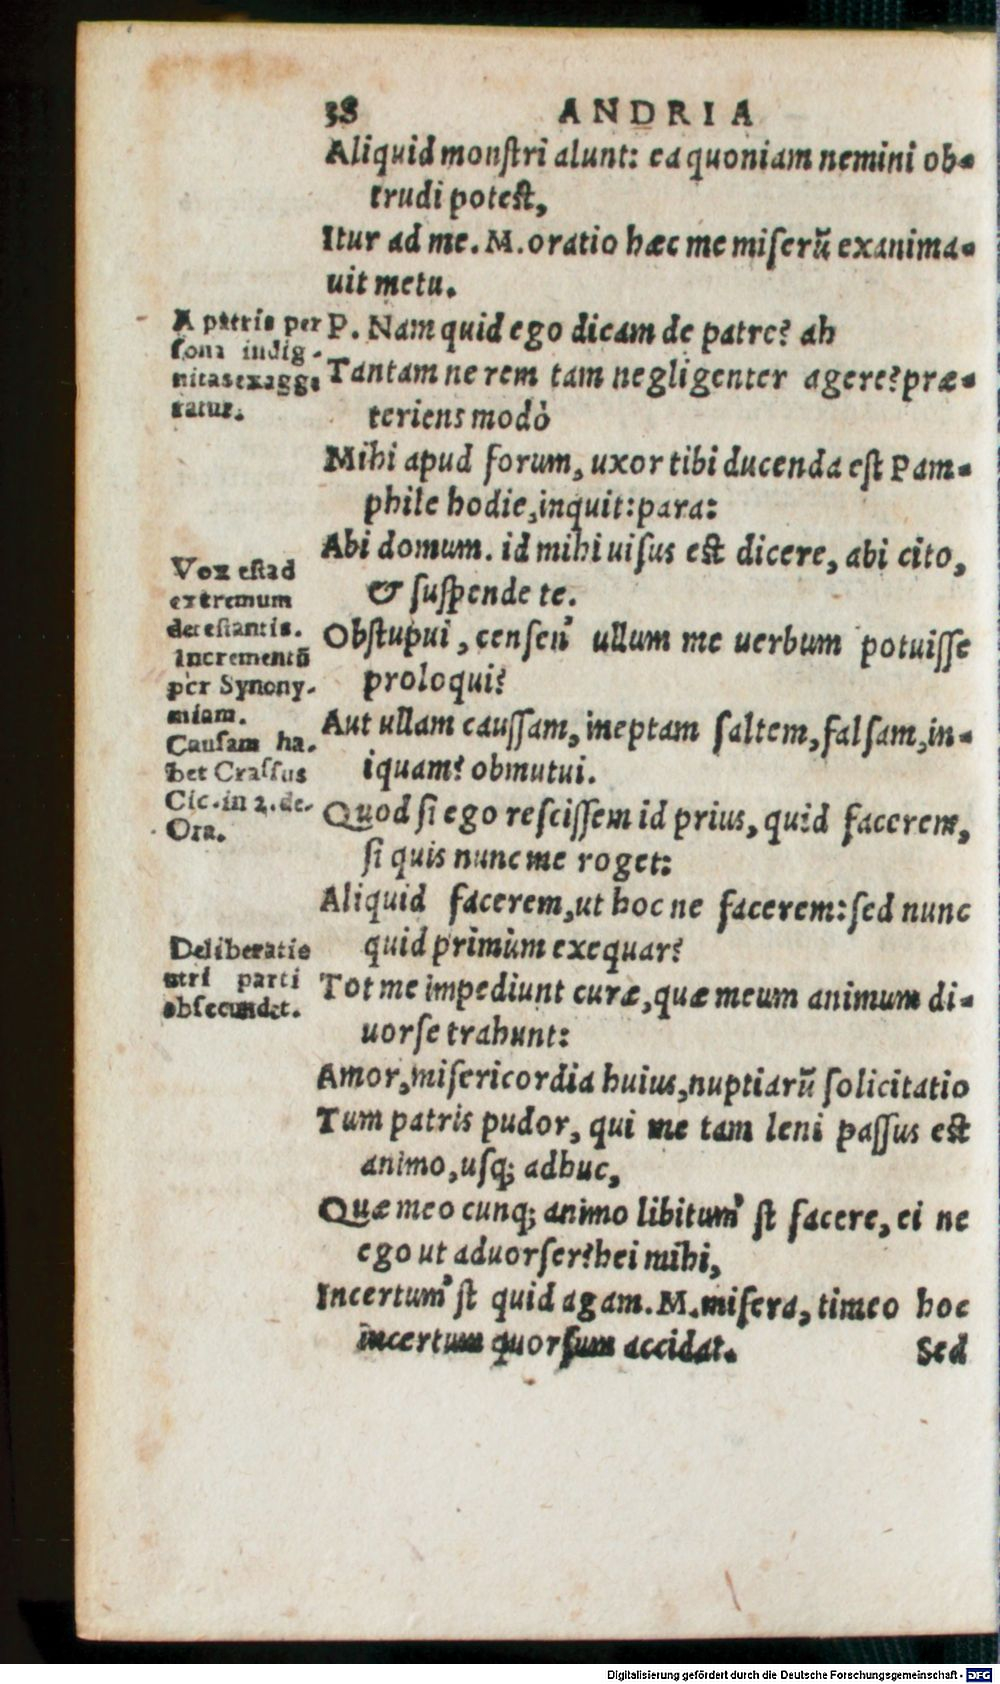 38 ANDRIA
Aliquid monſtri alunt: ea quoniam nemini ob-
trudi poteſt,
Itur ad me. M. oratio hæc me miſerũ exanima-
uit metu.
P. Nam quid ego dicam de patre? ah
Tantam ne rem tam negligenter agere? præ-
teriens modò
Mihi apud forum, uxor tibi ducenda eſt Pam-
phile hodie, inquit: para:
Abi domum. id mihi uiſus eſt dicere, abi cito,
& ſuſpende te.
Obſtupui, cenſen' ullum me uerbum potuiſſe
proloqui?
Aut ullam cauſſam, ineptam ſaltem, falſam, in-
iquam? obmutui.
Quod ſi ego reſciſſem id prius, quid facerem,
ſi quis nunc me roget:
Aliquid facerem, ut hoc ne facerem: ſed nunc
quid primùm exequar?
Tot me impediunt curæ, quæ meum animum di-
uorſe trahunt:
Amor, miſericordia huius, nuptiarũ ſolicitatio
Tum patris pudor, qui me tam leni paſſus eſt
animo, uſq; adhuc,
Quæ meo cunq; animo libitum' ſt facere, ei ne
ego ut aduorſer? hei mihi,
Incertum' ſt quid agam. M. miſera, timeo hoc
incertum quorſum accidat.
Sed
A patris per
ſona indig-
nitas exagge
ratur.
Vox eſt ad
extremum
deteſtantis.
Incrementũ
per Synony-
miam.
Cauſam ha-
bet Craſſus
Cic. in 2. de.
Ora.
Deliberatio
utri parti
obſecundet.
Digitalisierung gefördert durch die Deutsche Forschungsgemeinschaft - DFG